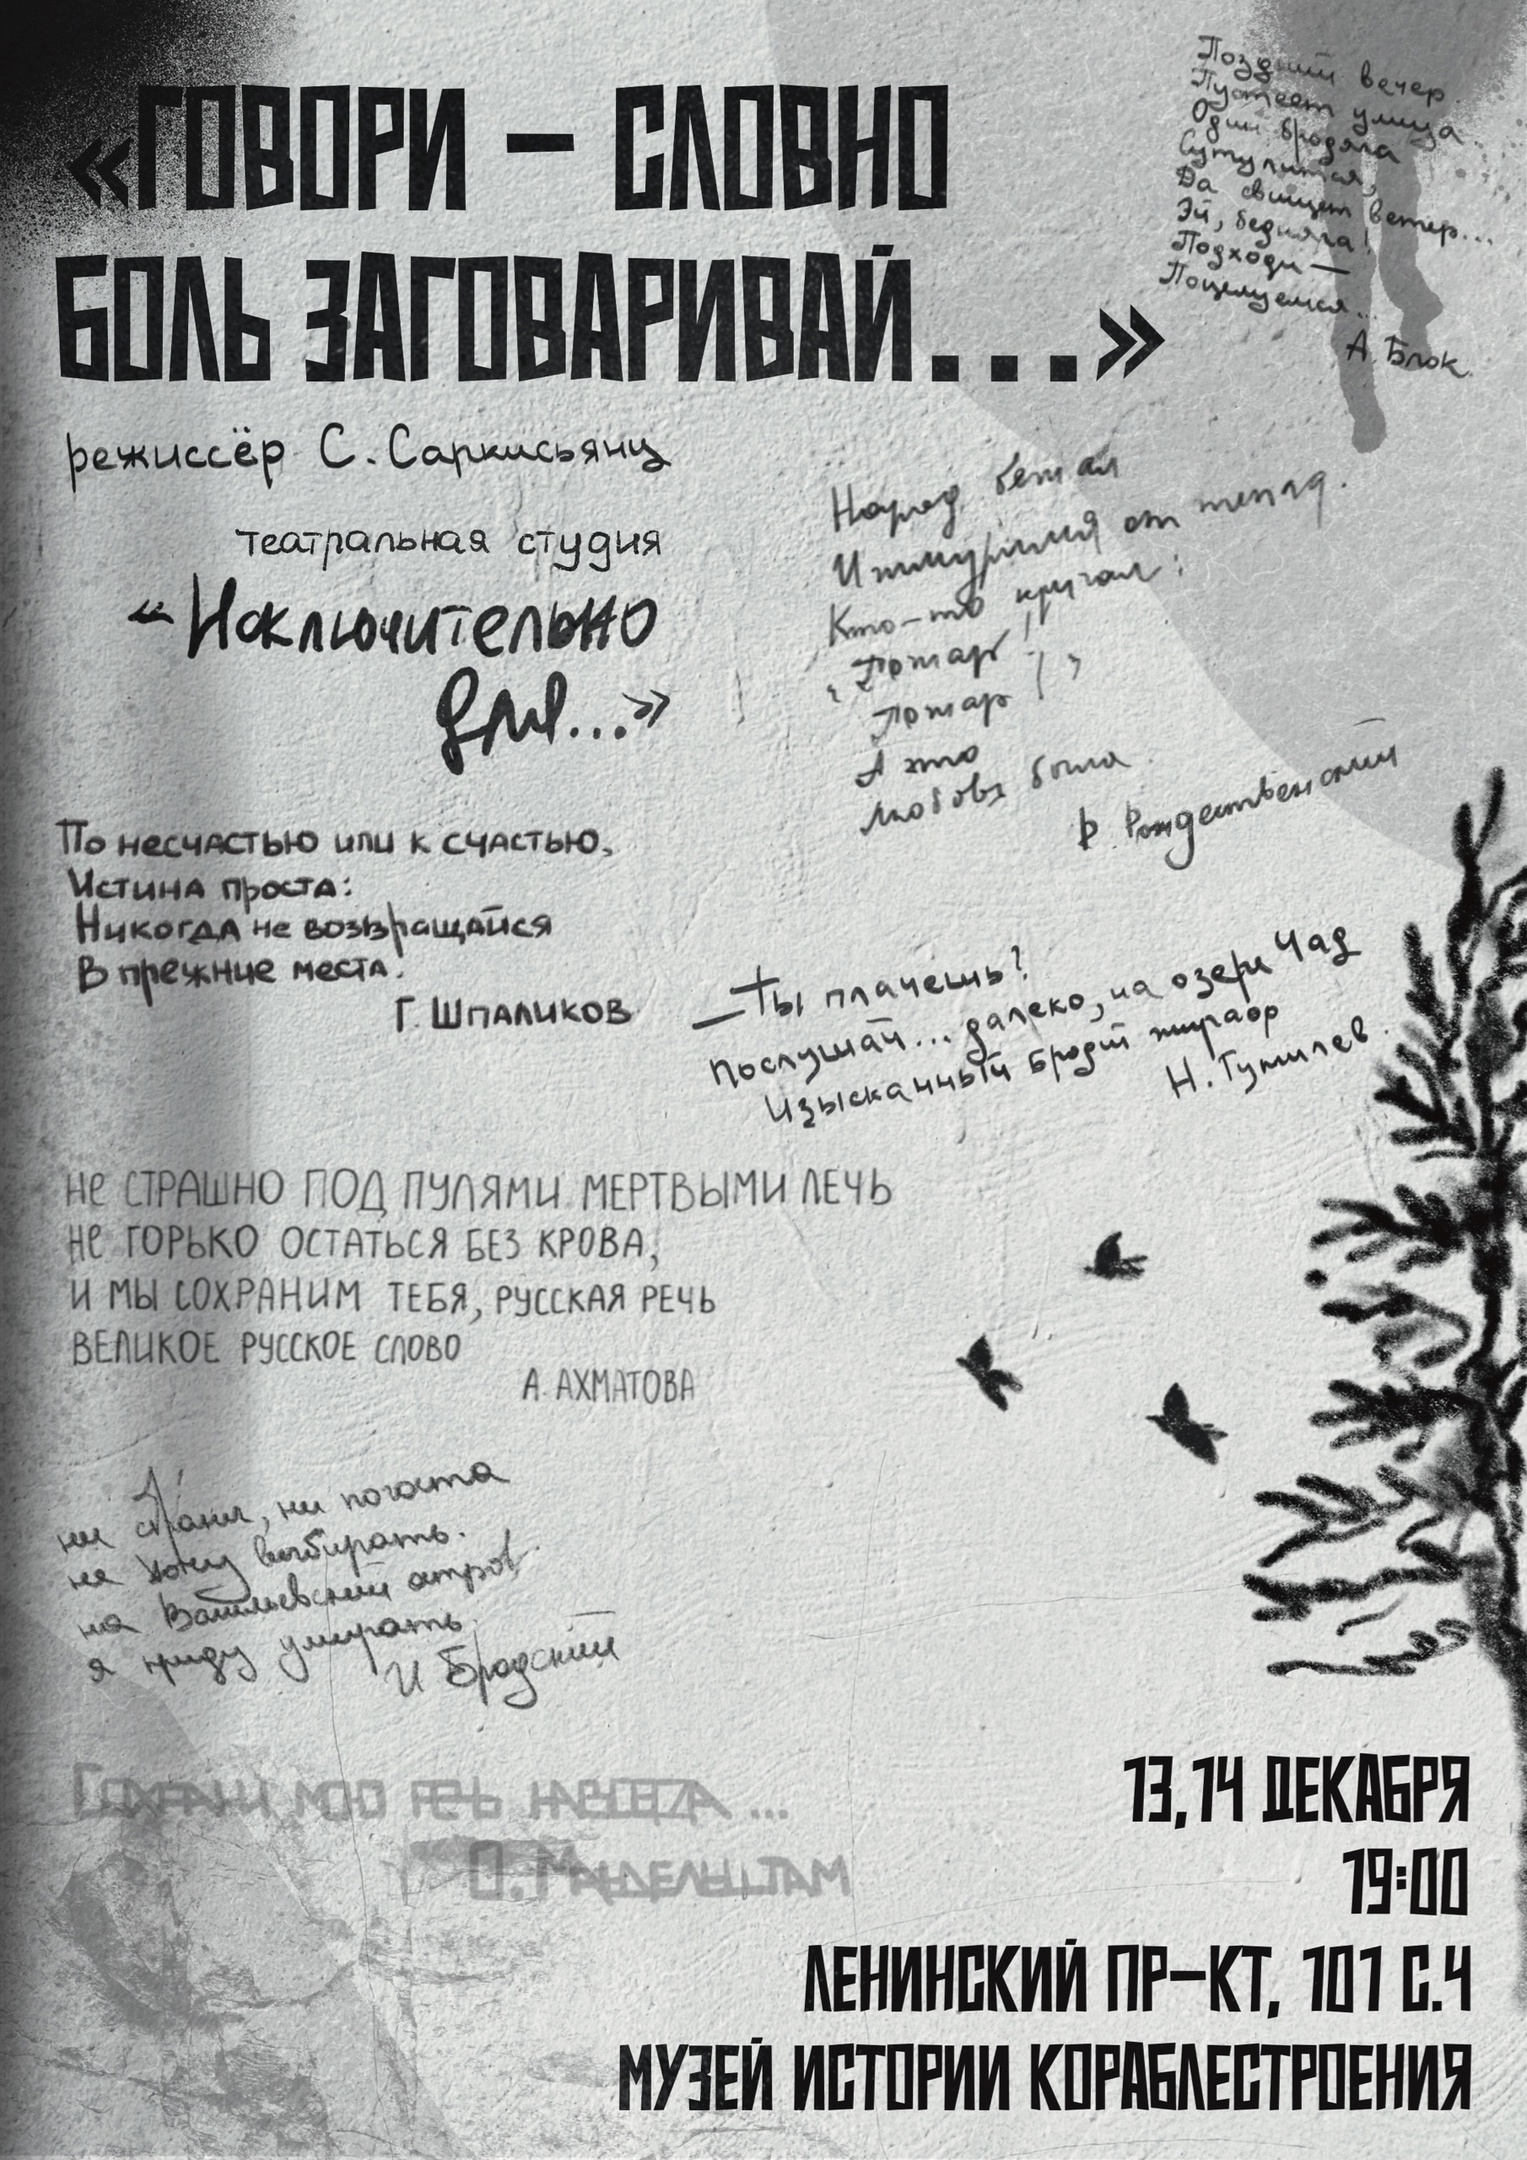 «ГОВОРИ – СЛОВНО
БОЛЬ ЗАГОВАРИВАЙ...»
режиссёр С. Саркисьянц
театральная студия
«Исключительно
для...»
Поздний вечер.
Пустеет улица.
Один бродяга
Сутулится,
Да свищет ветер...
Эй, бедняга!
Подходи —
Поцелуемся...
А. Блок
Народ бежал
И жмурился от тепла.
Кто-то кричал:
"Пожар!
Пожар!"
А это
Любовь была.
Р. Рождественский
По несчастью или к счастью,
Истина проста:
Никогда не возвращайся
В прежние места.
Г. Шпаликов
— Ты плачешь?
Послушай... далеко, на озере Чад
Изысканный бродит жираф
Н. Гумилев.
НЕ СТРАШНО ПОД ПУЛЯМИ МЕРТВЫМИ ЛЕЧЬ
НЕ ГОРЬКО ОСТАТЬСЯ БЕЗ КРОВА,
И МЫ СОХРАНИМ ТЕБЯ, РУССКАЯ РЕЧЬ
ВЕЛИКОЕ РУССКОЕ СЛОВО
А. АХМАТОВА
ни страны, ни погоста
не хочу выбирать.
на Васильевский остров
я приду умирать.
И Бродский
Сохрани мою речь навсегда...
О. Мандельштам
13,14 ДЕКАБРЯ
19:00
ЛЕНИНСКИЙ ПР-КТ, 101 С.4
МУЗЕЙ ИСТОРИИ КОРАБЛЕСТРОЕНИЯ